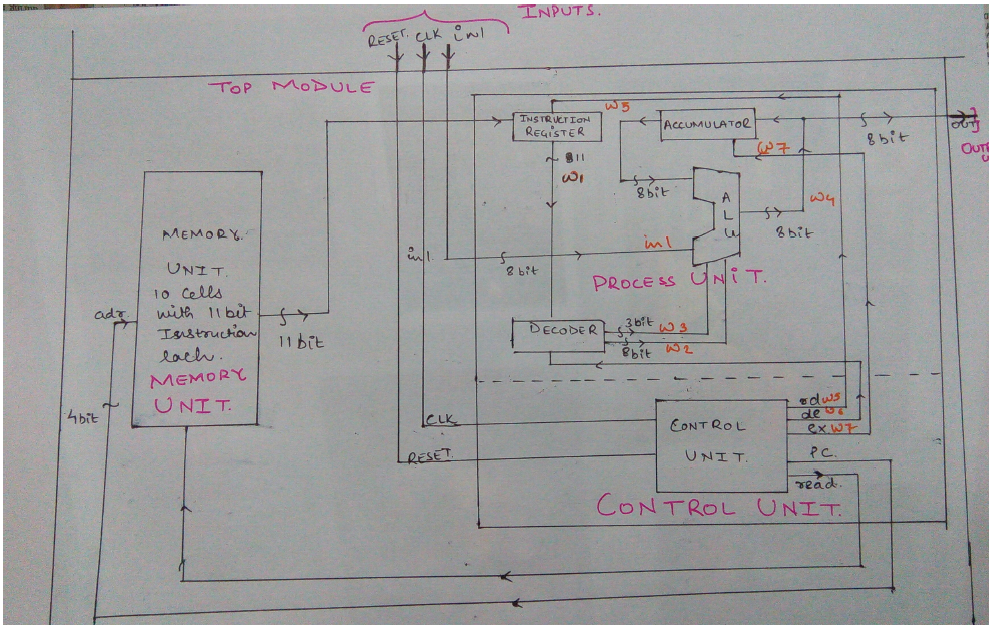 INPUTS.
RESET. CLK in1
TOP MODULE
INSTRUCTION
REGISTER
W5
ACCUMULATOR
W7
8bit
OUT
11
W1
8bit
A
L
U
W4
8bit
MEMORY.
UNIT.
10 Cells
with 11bit
Instruction
each.
MEMORY
UNIT.
adr.
11bit
4bit
in1.
8bit
in1
PROCESS UNIT.
DECODER
3bit W3
8bit W2
CLK
RESET.
CONTROL
UNIT.
rd W5
de W6
ex W7
PC.
read.
CONTROL UNIT.